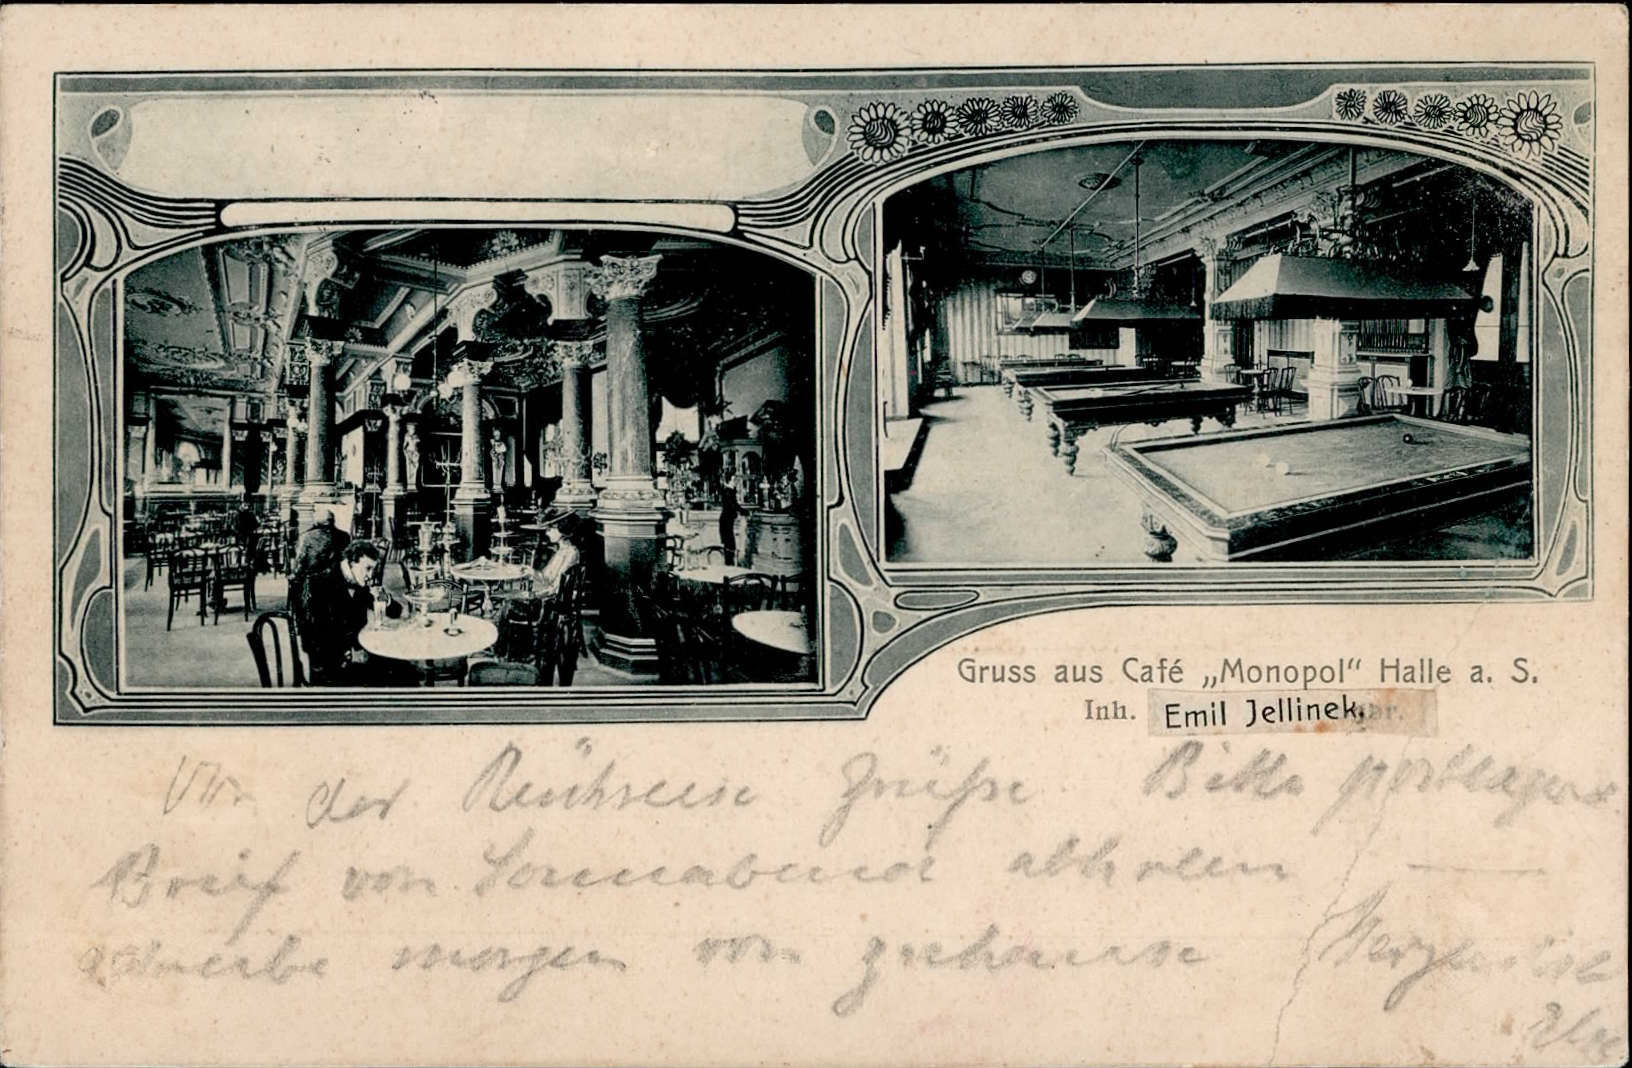 Gruss aus Café „Monopol“ Halle a. S.
Inh. Emil Jellinek.
Von der Rückreise Grüße. Bitte postlagernd
Brief von Sonnabend abholen —
schreibe morgen von zuhause